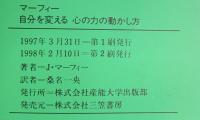 マーフィー
自分を変える 心の力の動かし方
1997年3月31日—第1刷発行
1998年2月10日—第2刷発行
著者—J・マーフィー
訳者—桑名一央
発行所—株式会社産能大学出版部
発売元—株式会社三笠書房